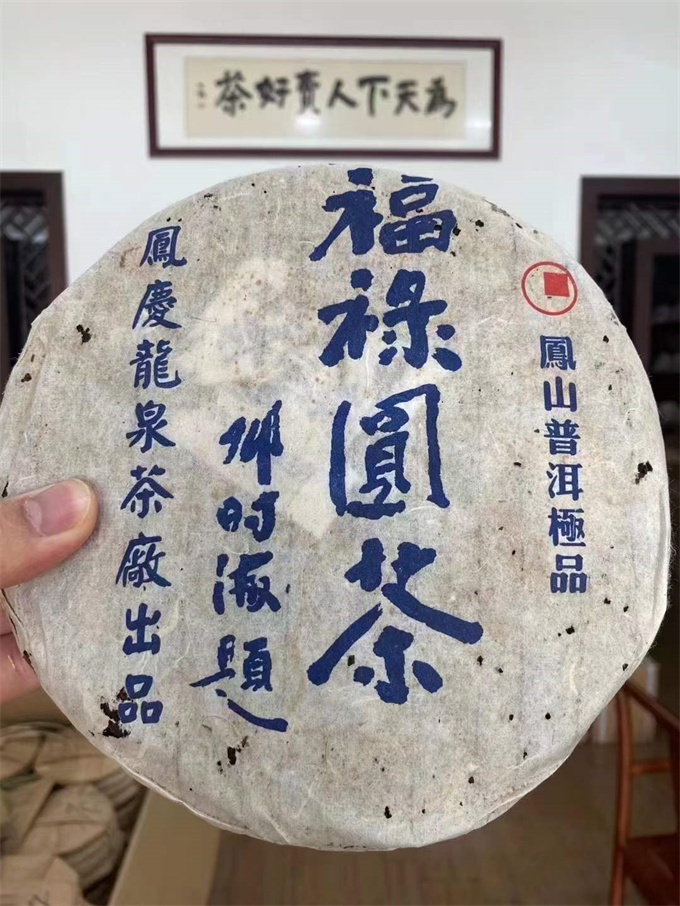 為天下人賣好茶
鳳山普洱極品
福祿圓茶
邓时海題
鳳慶龍泉茶廠出品